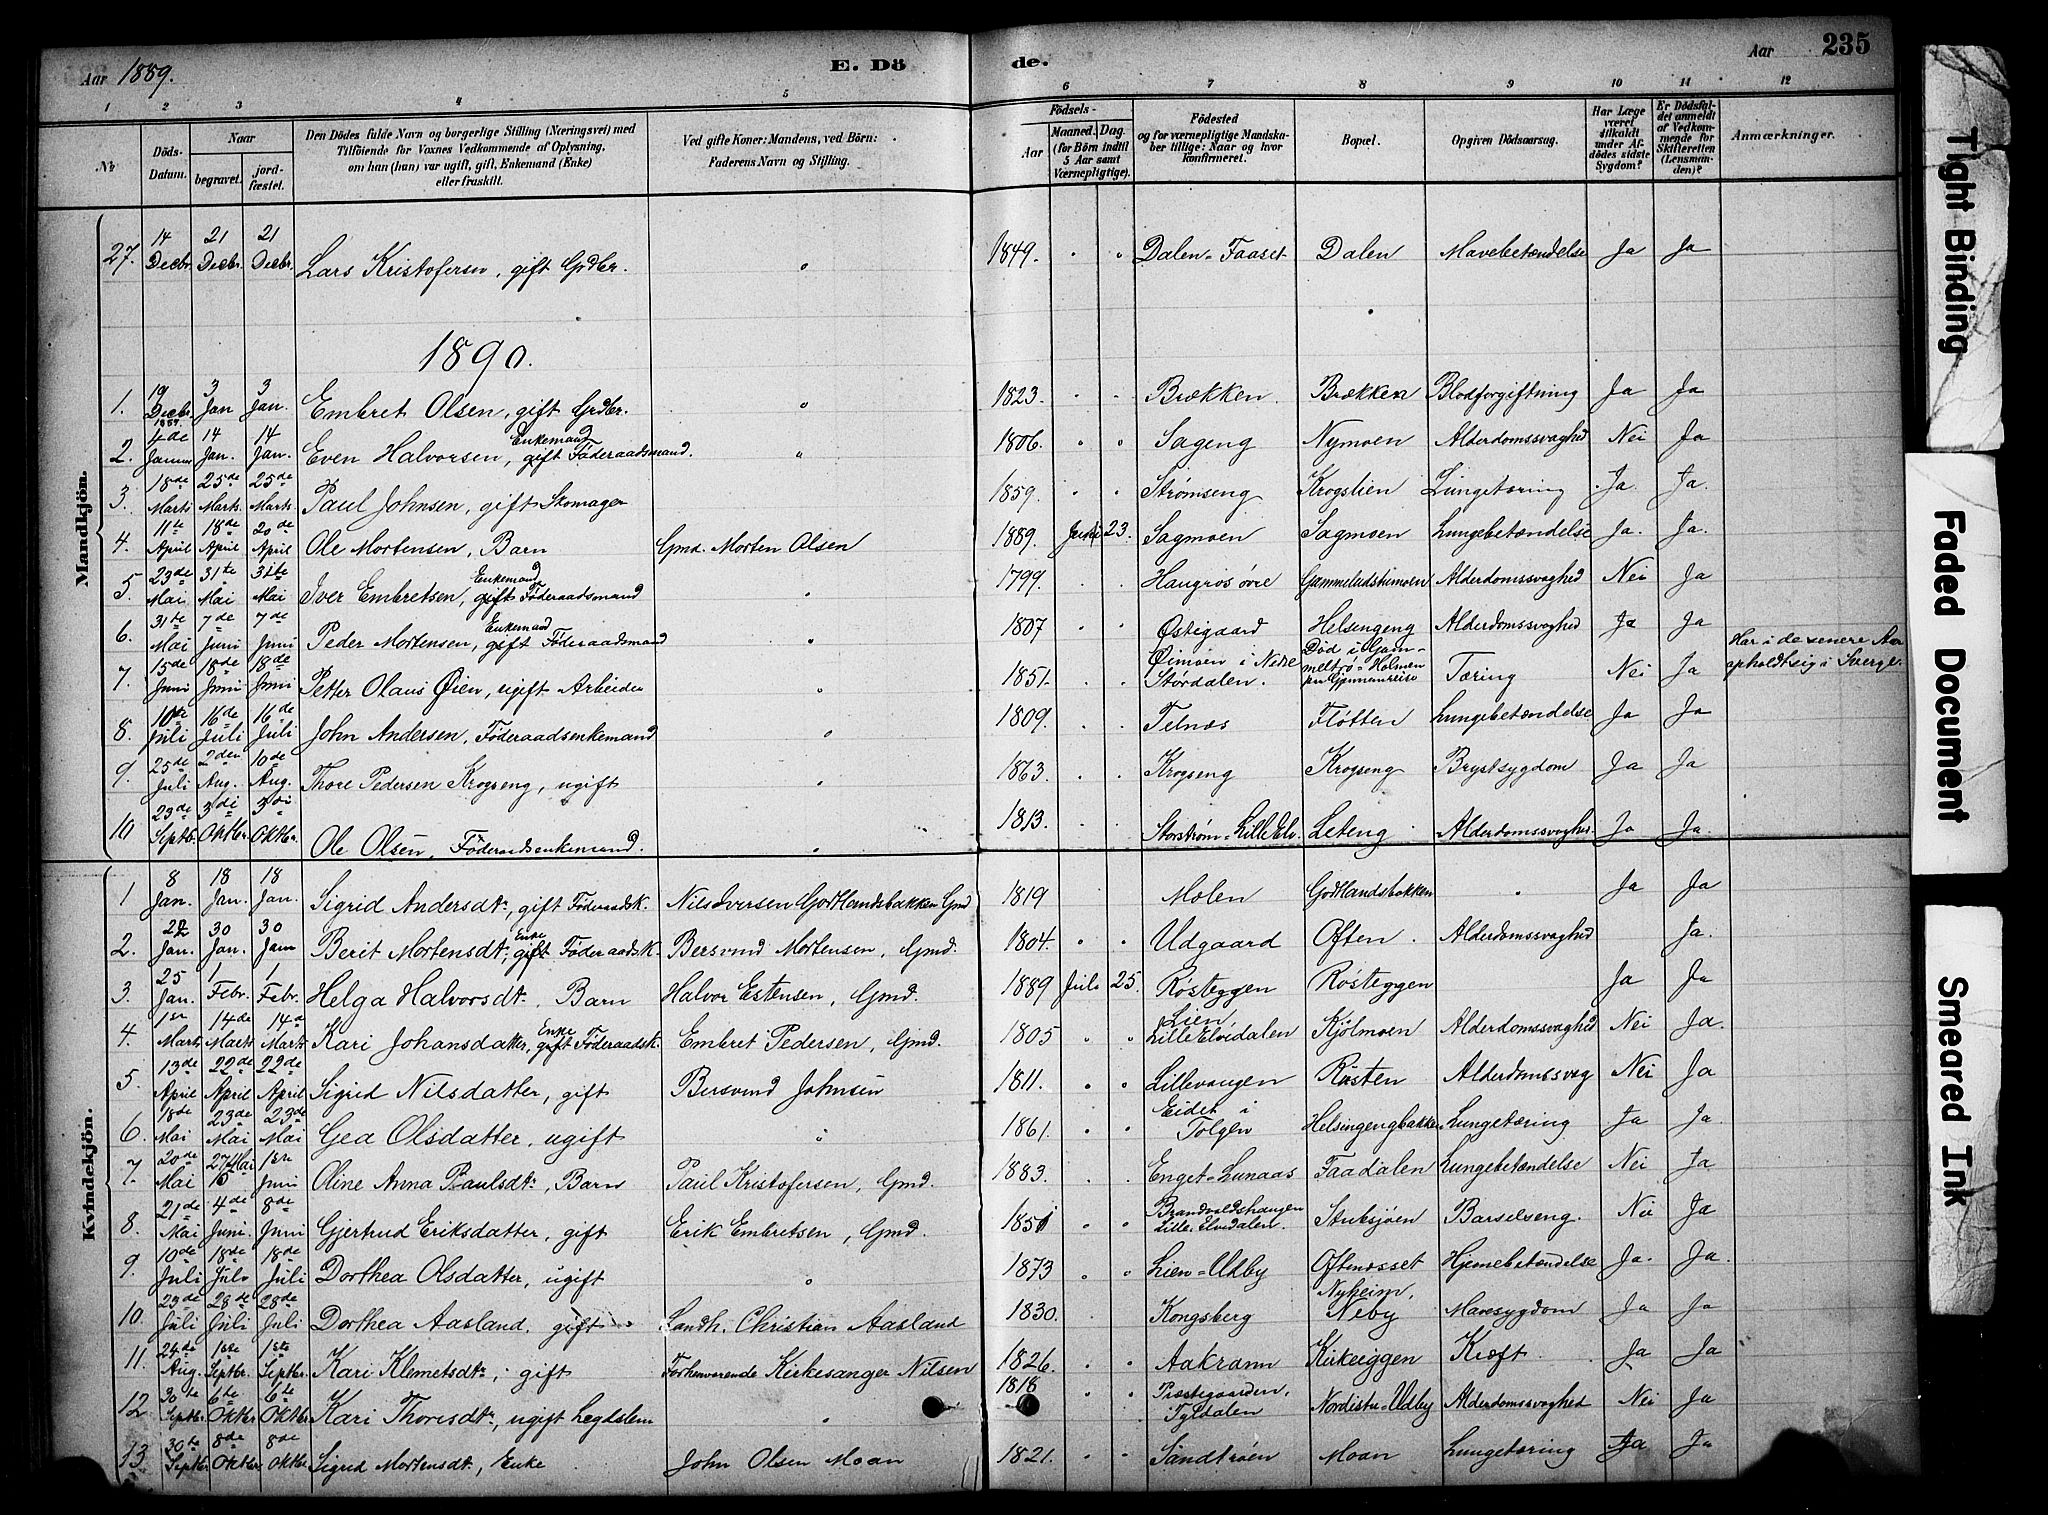 Aar 1889. E. Dö de. Aar 235
1 2 3 4 5 6 7 8 9 10 11 12
No Döds-Datum. Naar begravet. jordfæstet. Den Dödes fulde Navn og borgerlige Stilling (Næringsvei) med Tilföiende for Voxnes Vedkommende af Oplysning, om han (hun) var ugift, gift, Enkemand (Enke) eller fraskilt. Ved gifte Koner: Mandens, ved Börn: Faderens Navn og Stilling. Födsels- Aar Maaned. Dag. (for Börn indtil 5 Aar samt Værnepligtige). Födested og for værnepligtige Mandskaber tillige: Naar og hvor konfirmeret. Bopæl. Opgiven Dödsaarsag. Har Læge været tilkaldt under Afdödes sidste Sygdom? Er Dödsfaldet anmeldt af Vedkommende for Skifteretten (Lensmanden)? Anmærkninger.
Mandkjön.
27. 14 Decbr. 21 Decbr. 21 Decbr. Lars Kristofersen, gift Grdbr. " 1849. " " Dalen = Faaset Dalen Mavebetændelse Ja Ja
1890.
1. 19 Decbr. 1889. 3 Jan 3 Jan. Embret Olsen, gift Grdbr. " 1823. " " Brækken. Brækken Blodforgiftning Ja Ja
2. 4de Januar 14 Jan. 14 Jan. Even Halvorsen, gift Enkemand Föderaadsmand. " 1806. " " Sageng Nymoen Alderdomssvaghed Nei Ja
3. 18de Marts 25de Marts. 25de Marts Paul Johnsen, gift Skomager 1859. " " Strømseng Krogslien Lungetæring Ja. Ja.
4. 11te April 18de April 20de April Ole Mortensen, Barn Gmd. Morten Olsen 1889. 23. Sagmoen Sagmoen Lungebetændelse Ja. Ja.
5. 23de Mai 31te Mai 31te Mai Iver Embretsen, gift Enkemand Föderaadsmand " 1799. " " Haugros øvre Alderdomssvaghed Nei Ja
6. 31te Mai 7de Juni 7de Juni Peder Mortensen, gift Enkemand Föderaadsmand " 1807 " " Østigaard Helsingeng Alderdomssvaghed Ja Ja
7. 15de Juni 18de Juni 18de Juni Petter Olaus Øien, ugift Arbeider " 1851. " " Øimoen i Nedre Størdalen. Död i Gammeltrø = Holmen paa Gjennemreise Tæring Nei Ja Har i de senere Aar opholdt sig i Sverge.
8. 10de Juli 16de Juli 16de Juli John Andersen, Föderaadsenkemand " 1809. " " Telnæs Fløtten Lungebetændelse Ja Ja
9. 25de Juli 2den Aug. 10de Aug. Thore Pedersen Krogseng, ugift " 1863. " " Krogseng Krogseng Brystsygdom Ja Ja
10 23de Septbr. 3di Oktbr. 3di Oktbr. Ole Olsen, Föderaadsenkemand. " 1813. " " Storstrøm = Lille Elv. Leteng Alderdomssvaghed Ja Ja.
Kvindekjön.
1 8 Jan. 18 Jan. 18 Jan. Sigrid Andersdtr, gift Föderaadsk. Nils Iversen Godtlandsbakken Gmd 1819 Molen Godtlandsbakken " Ja Ja
2. 22 Jan. 30 Jan. 30 Jan Berit Mortensdtr, gift Enke Föderaadsk. Bersvend Mortensen, Gmd. 1804. " " Udgaard Often. Alderdomssvaghed Ja.
3. 25 Jan. 1 Febr. 1 Febr. Helga Halvorsdtr, Barn Halvor Estensen, Gmd. 1889 Juli 25. Røsteggen Røsteggen Ja Ja
4. 1ste Marts 14de Marts 14de Marts Kari Johansdatter, gift Enke Föderaadsk. Embret Pedersen, Gmd. 1805 " " Lien, Lille Elvedalen Kjølmoen Alderdomssvaghed Nei Ja.
5. 13de April 22de April 22de April Sigrid Nilsdatter, gift Bersvend Johnsen 1811. " " Lillevangen Røsten Alderdomssvag Nei Ja
6. 18de Mai 23de Mai 23de Mai Gea Olsdatter, ugift " 1861. " " Eidet i Tolgen Helsingengbakken Lungetæring Ja Ja
7. 20de Mai 27de Mai 1ste Juni Oline Anna Paulsdtr, Barn Paul Kristofersen, Gmd. 1883. " " Enget = Lunaas Faadalen Lungebetændelse Nei Ja
8. 21de Mai 4de Juni. 8de Juni Gjertrud Eriksdatter, gift Erik Embretsen, Gmd. 1851 " " Brandvoldshaugen Lille-Elvedalen. Stuksjøen Barselseng. Nei Ja
9. 10de Juli 18de Juli 18de Juli Dorthea Olsdatter, ugift " 1873 " " Lien = Udby Oftenæsset Hjernebetændelse Ja. Ja.
10. 23de Juli 28de Juli 28de Juli Dorthea Aasland, gift Landh. Christian Aasland 1830. " Kongsberg Nyheim, Neby Mavesygdom Ja Ja
11. 24de Aug. 1ste Septbr 1ste Septbr. Kari Klemetsdtr, gift Forhenværende Kirkesanger Nilsen 1826. " " Aakrann Kirkeiggen Kræft. Ja Ja
12 30te Septbr. 6te Oktbr 6te Oktbr Kari Thoresdtr, ugift Legdslem " 1818 " " Præstegaarden, Tyldalen Nordistu = Udby Alderdomssvaghed Nei Ja
13. 30te Septbr 8de Oktbr 8de Oktbr. Sigrid Mortensdtr, Enke John Olsen Moan 1821. " " Sandtrøen Moan Lungetæring Ja Ja
Tight Binding
Faded Document
Smeared Ink